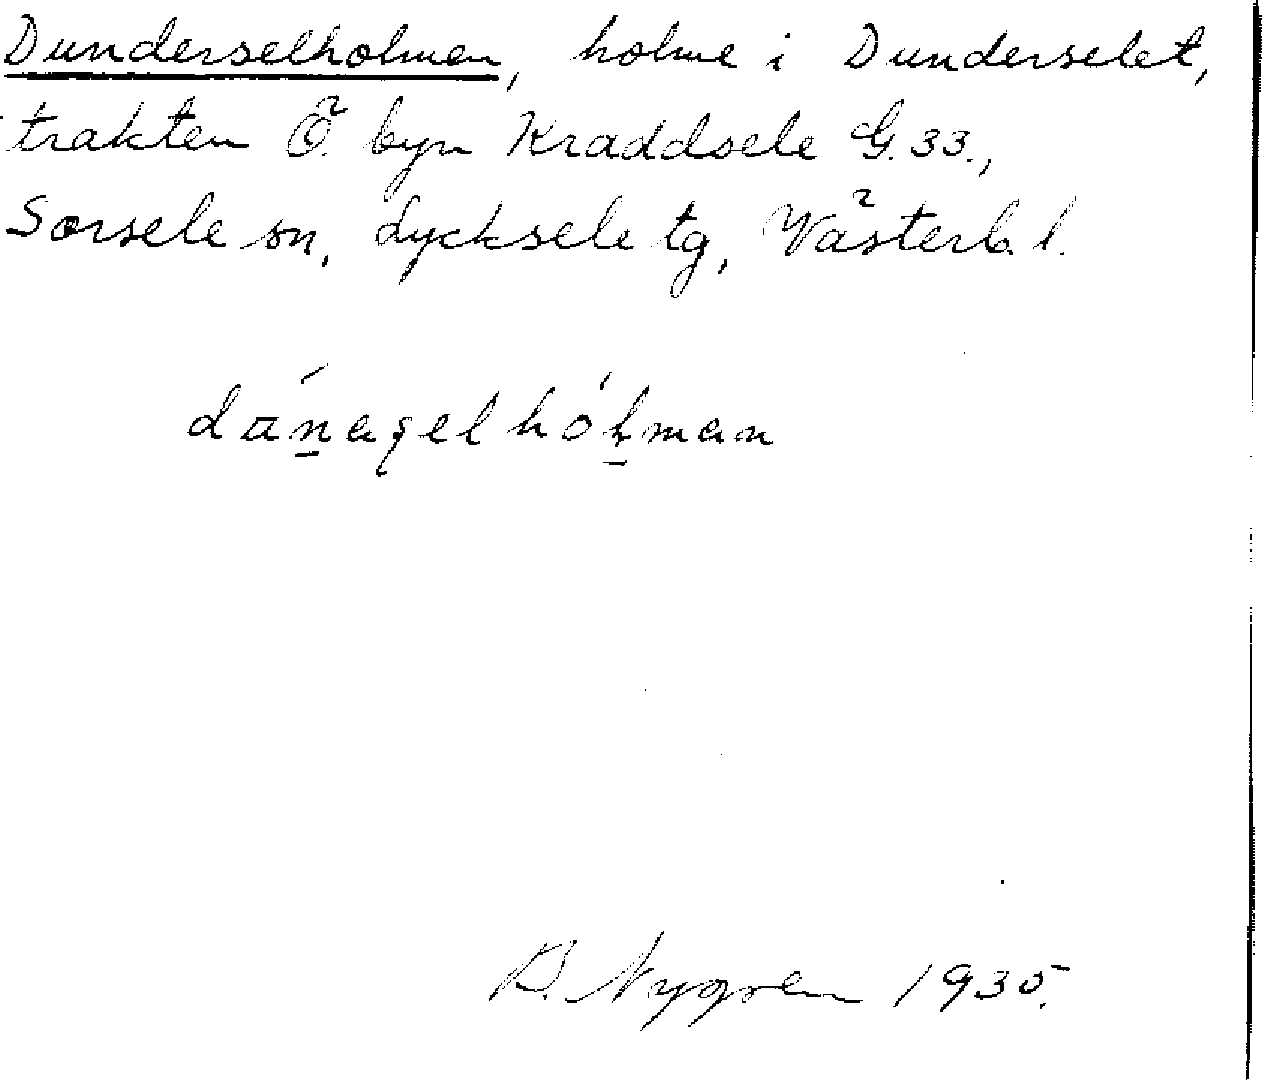 Dunderselholmen, holme i Dunderselet,
trakten Ö. byn Kraddsele G. 33.,
Sorsele sn, Lycksele tg, Västerb. l.
B. Nygren 1935.